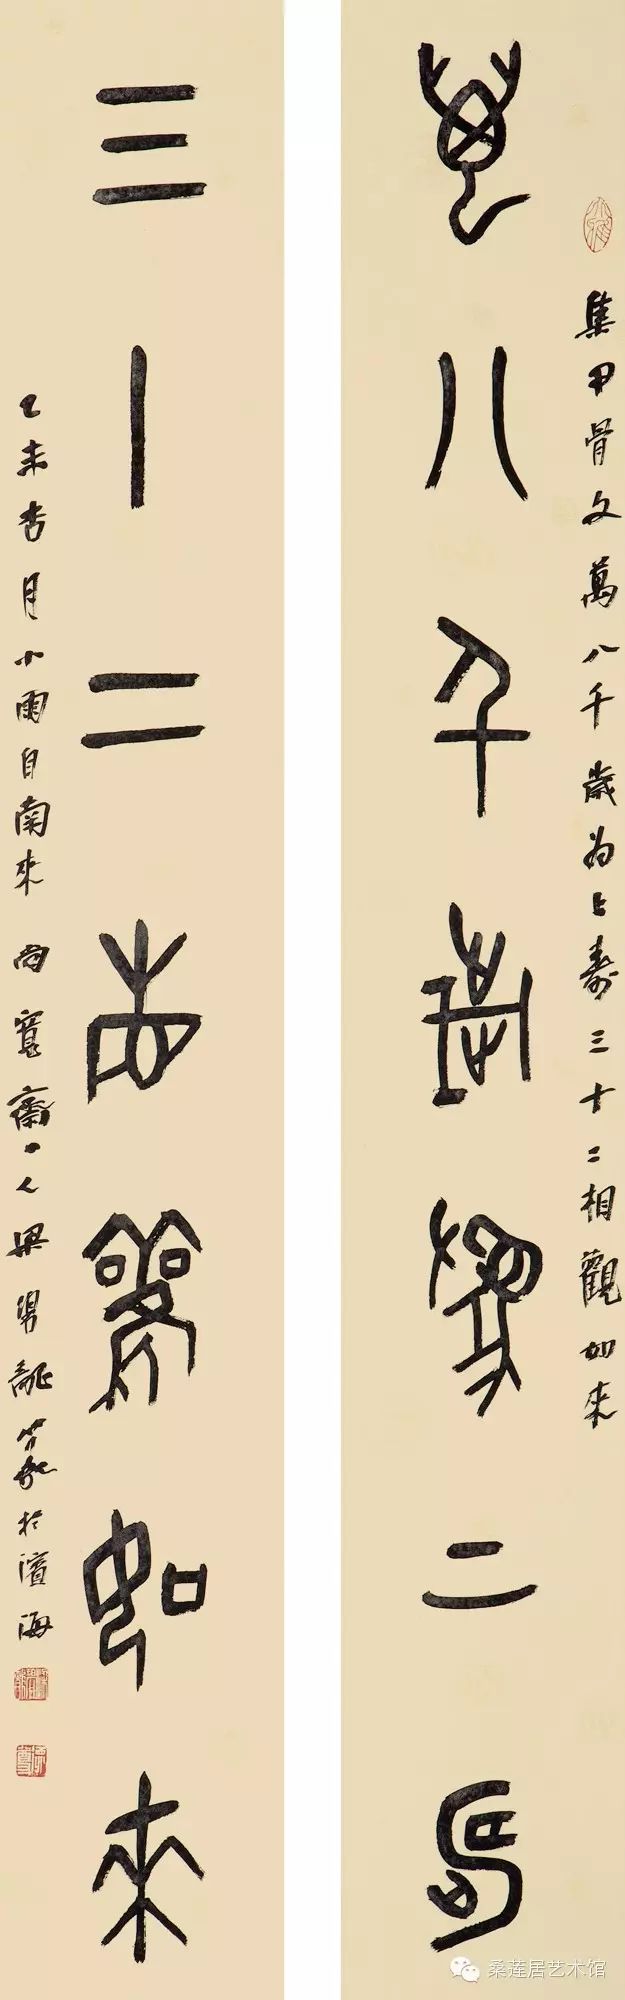 萬八千歲為上壽
集甲骨文萬八千歲為上壽三十二相觀如來
三十二相觀如來
乙未杏月小雨自南來尚寬齋主人梁勇龍篆於濱海
桑莲居艺术馆